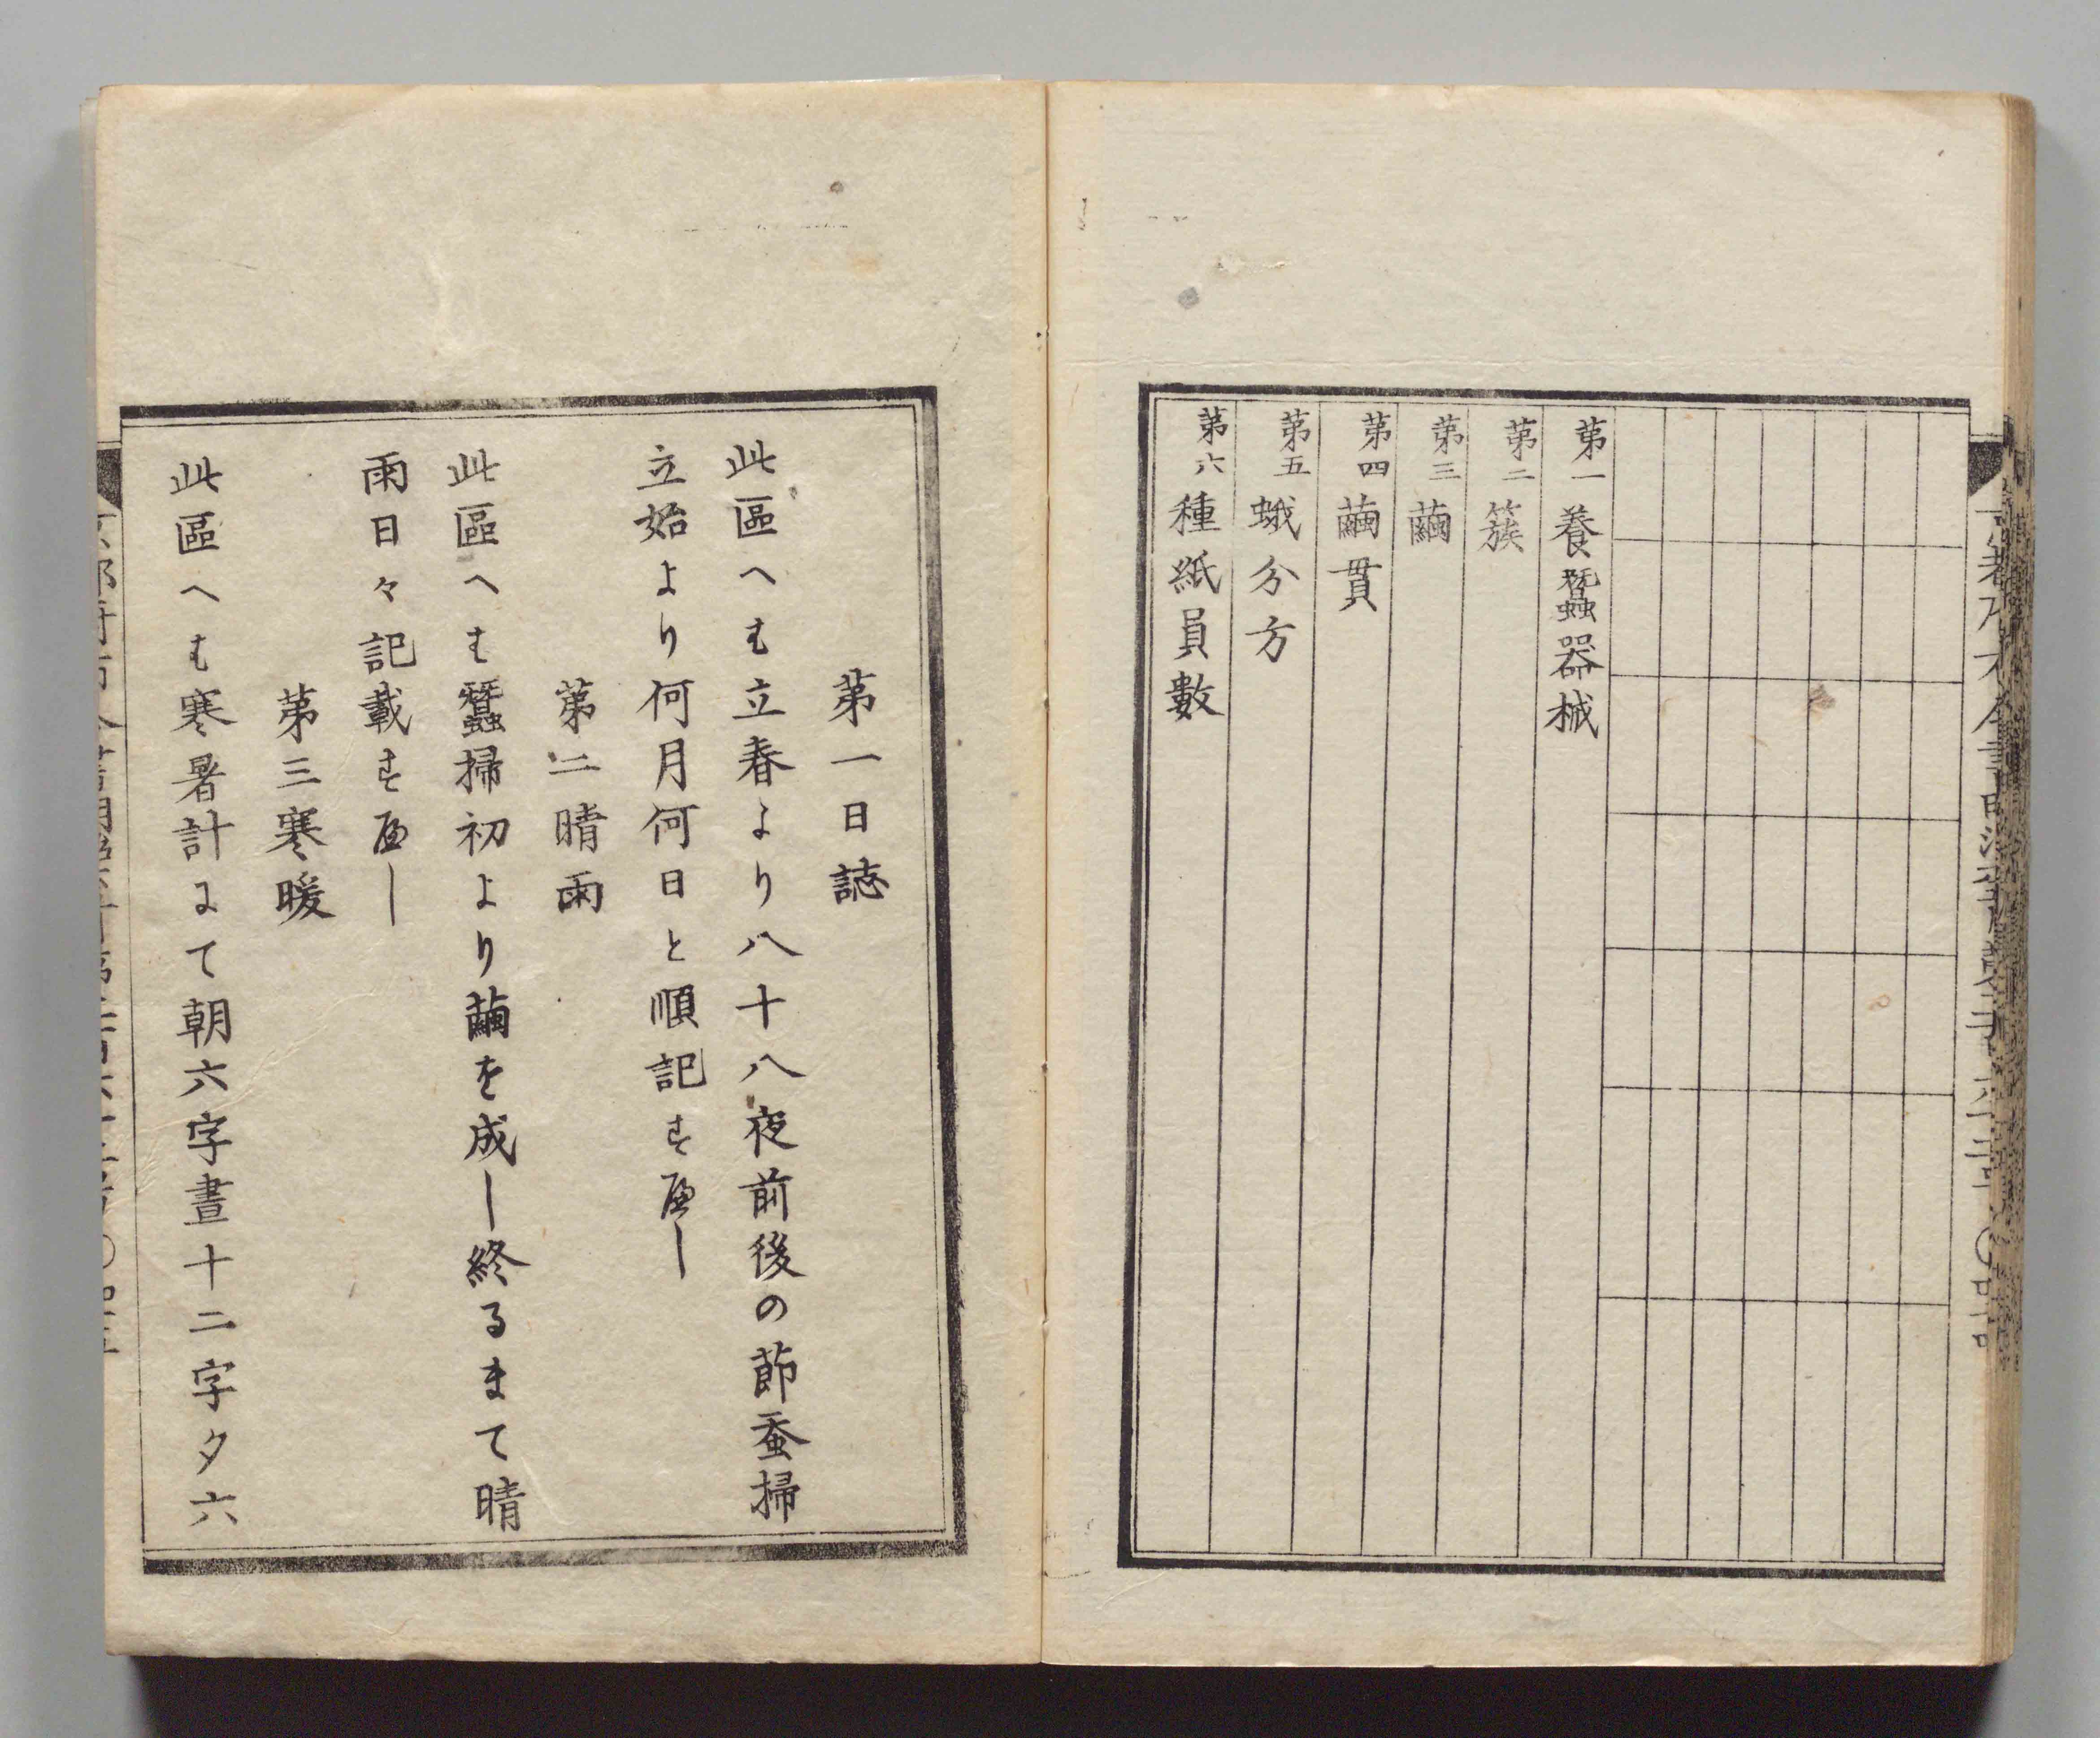 第一養蠶器械
第二簇
第三繭
第四繭貫
第五蛾分方
第六種紙員數
第一日誌
此區へも立春より八十八夜前後の節蚕掃
立始より何月何日と順記すへし
第二晴雨
此區へも蠶掃初より繭を成し終るまて晴
雨日々記載すへし
第三寒暖
此區へも寒暑計にて朝六字晝十二字夕六